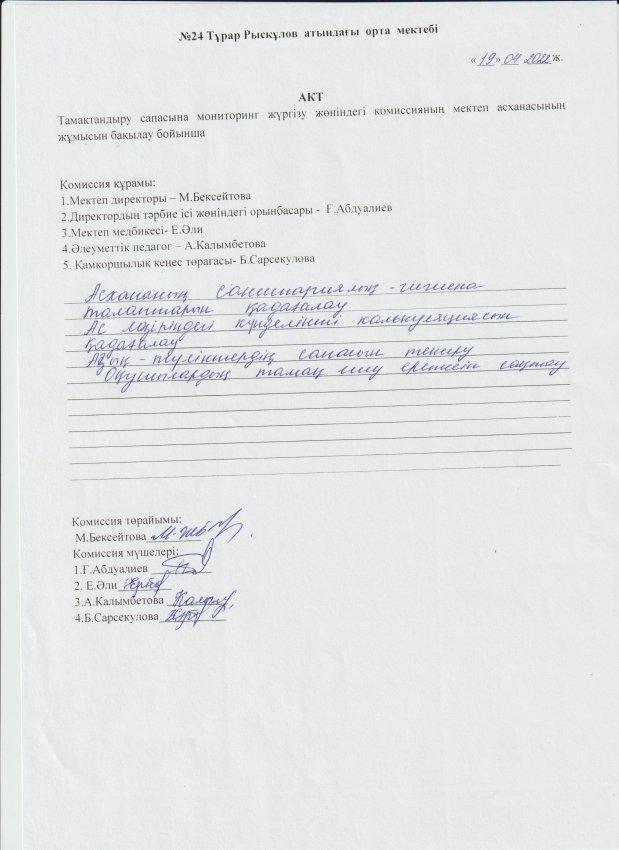 №24 Тұрар Рысқұлов атындағы орта мектебі
« 19 » 04 2022 ж.
АКТ
Тамақтандыру сапасына мониторинг жүргізу жөніндегі комиссияның мектеп асханасының
жұмысын бақылау бойынша
Комиссия құрамы:
1.Мектеп директоры – М.Бексейтова
2.Директордың тәрбие ісі жөніндегі орынбасары - Ғ.Абдуалиев
3.Мектеп медбикесі- Е.Әли
4.Әлеуметтік педагог – А.Калымбетова
5. Қамқоршылық кеңес төрағасы- Б.Сарсекулова
Асхананың санитариялық -гигиена
талаптарын қадағалау
Ас мәзіріндегі күнделікті калькуляциясын
қадағалау
Азық - түліктердің сапасын тексеру
Оқушылардың тамақ ішу ережесін сақтау
Комиссия төрайымы:
М.Бексейтова
Комиссия мүшелері:
1.Ғ.Абдуалиев
2. Е.Әли
3.А.Калымбетова
4.Б.Сарсекулова